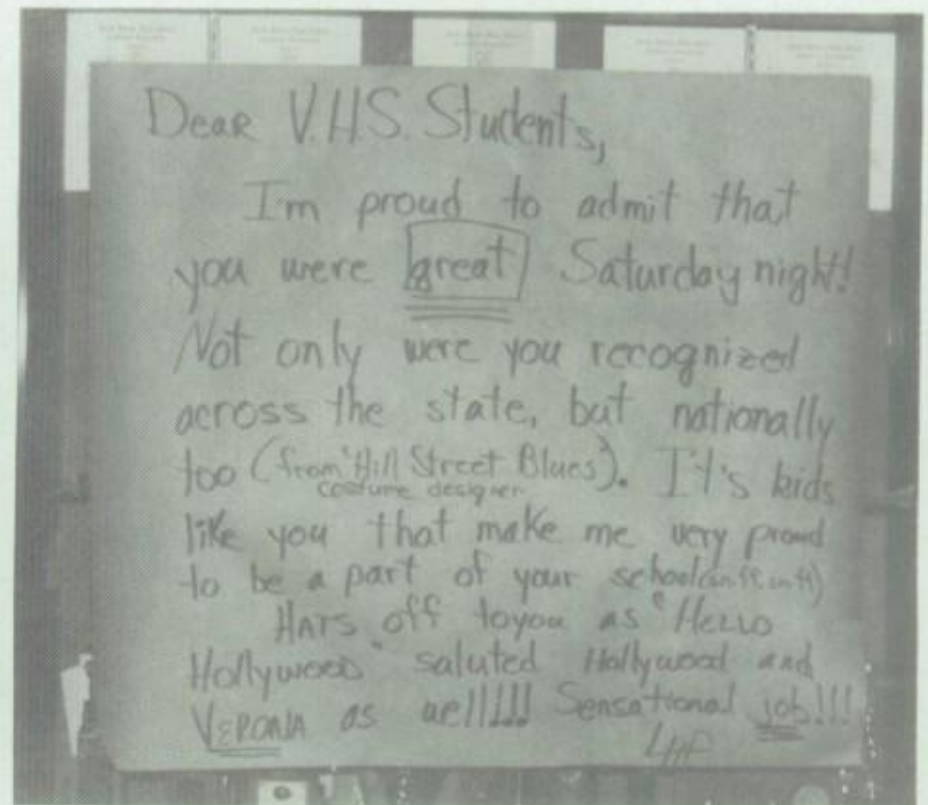 Dear V.H.S. Students,
I'm proud to admit that
you were great Saturday night!
Not only were you recognized
across the state, but nationally
too (from "Hill Street Blues").
costume designer
It's kids
like you that make me very proud
to be a part of your school (sniff sniff)
HATS off toyou as "HELLO
Hollywood" saluted Hollywood and
VERONA as well!!!! Sensational job!!!